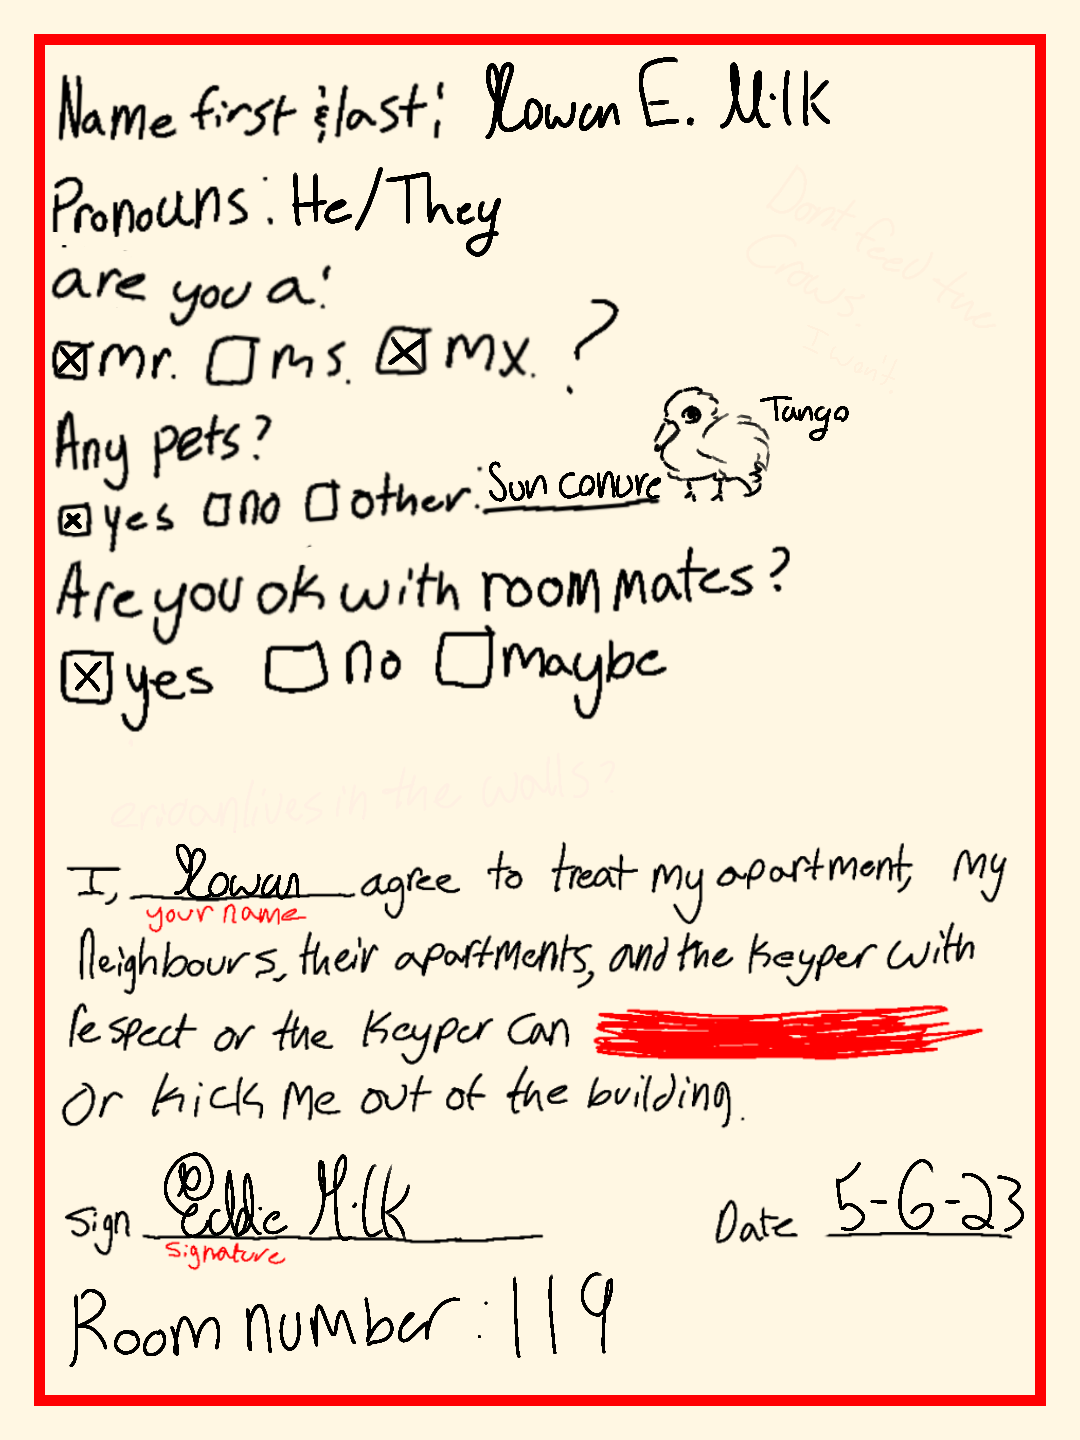 Name first & last: Rowan E. Milk
Pronouns: He/They
Dont feed the
Crows.
I won't.
are you a:
mr. ms. mx. ?
Any pets?
Tango
yes no other: Sun conure
Are you ok with roommates?
yes no maybe
lives in the walls?
I, Rowan agree to treat my apartment, my
your name
Neighbours, their apartments, and the Keyper with
respect or the Keyper can
Or kick me out of the building.
Sign Eddie Milk Date 5-6-23
signature
Room number: 119